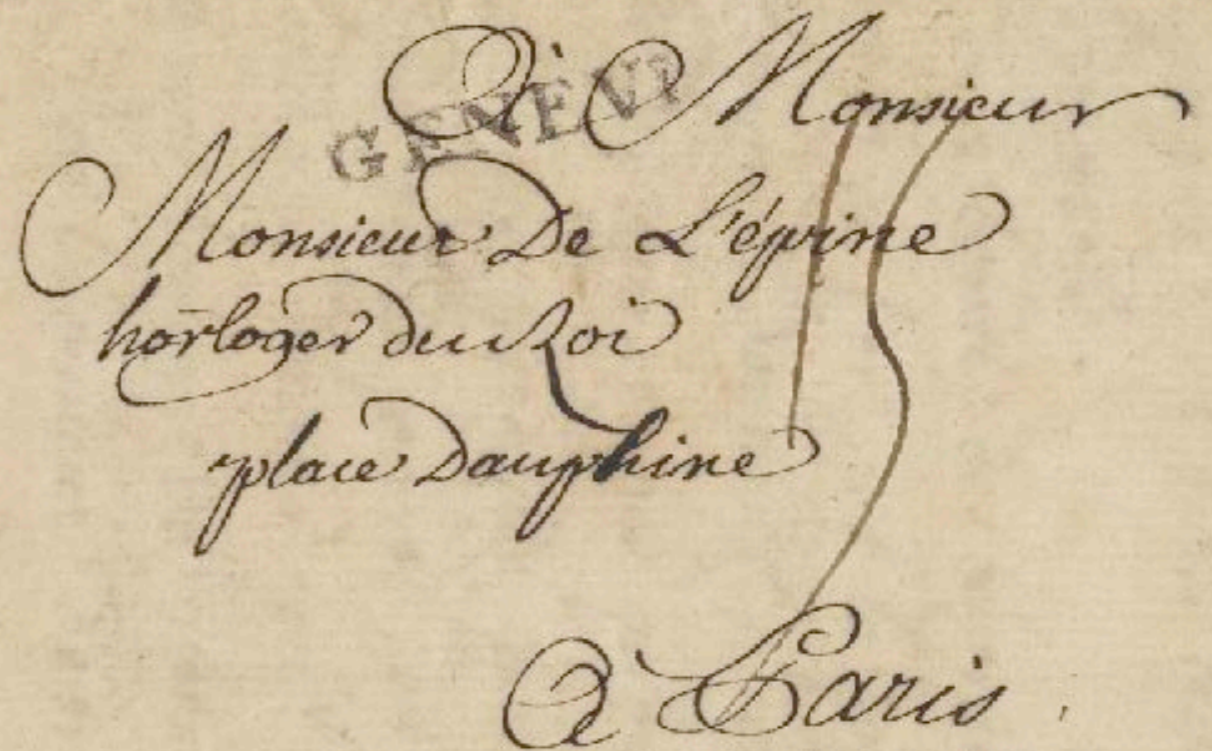 À Monsieur
GENEVE
Monsieur De L'épine
horloger du Roi
place Dauphine
15
A Paris.